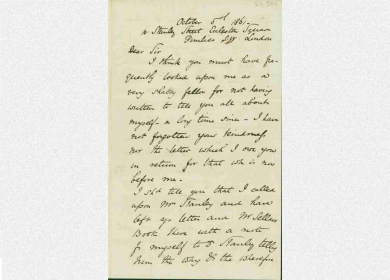 October 5th 1861
Stanley Street Eccleston Square
Pimlico S.W. London
Dear Sir
I think you must have fre-
quently looked upon me as a
very shabby fellow for not having
written to tell you all about
myself - a long time since - I have
not forgotten your kindness
nor the letter which I owe you
in return for that wh is now
before me -
I shd tell you that I called
upon Mr Stanley and have
left yr letter and Mr
Book there with a note
fr myself to Stanley telling
him the why & the wherefore